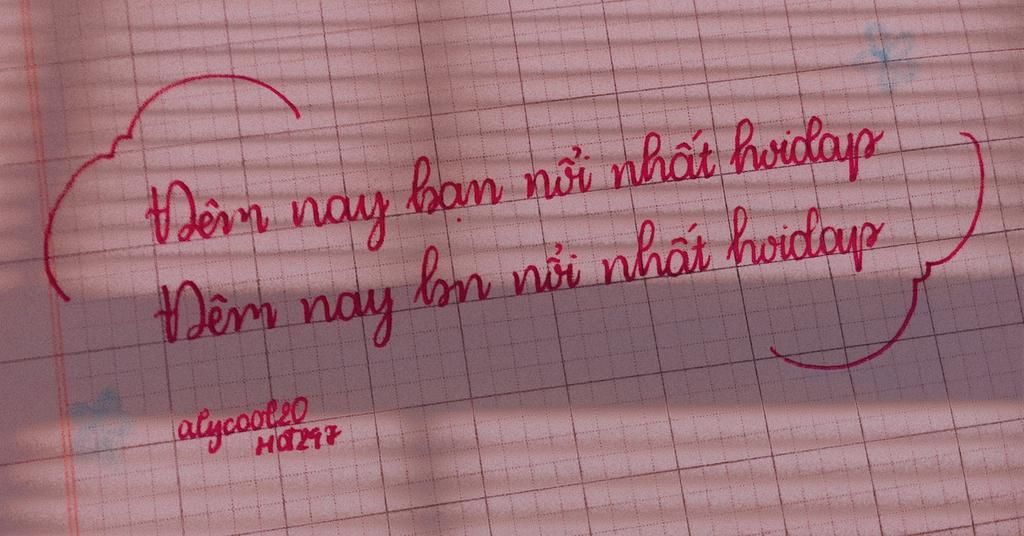 Đêm nay bạn nổi nhất hoidap
Đêm nay bn nổi nhất hoidap
alycool20